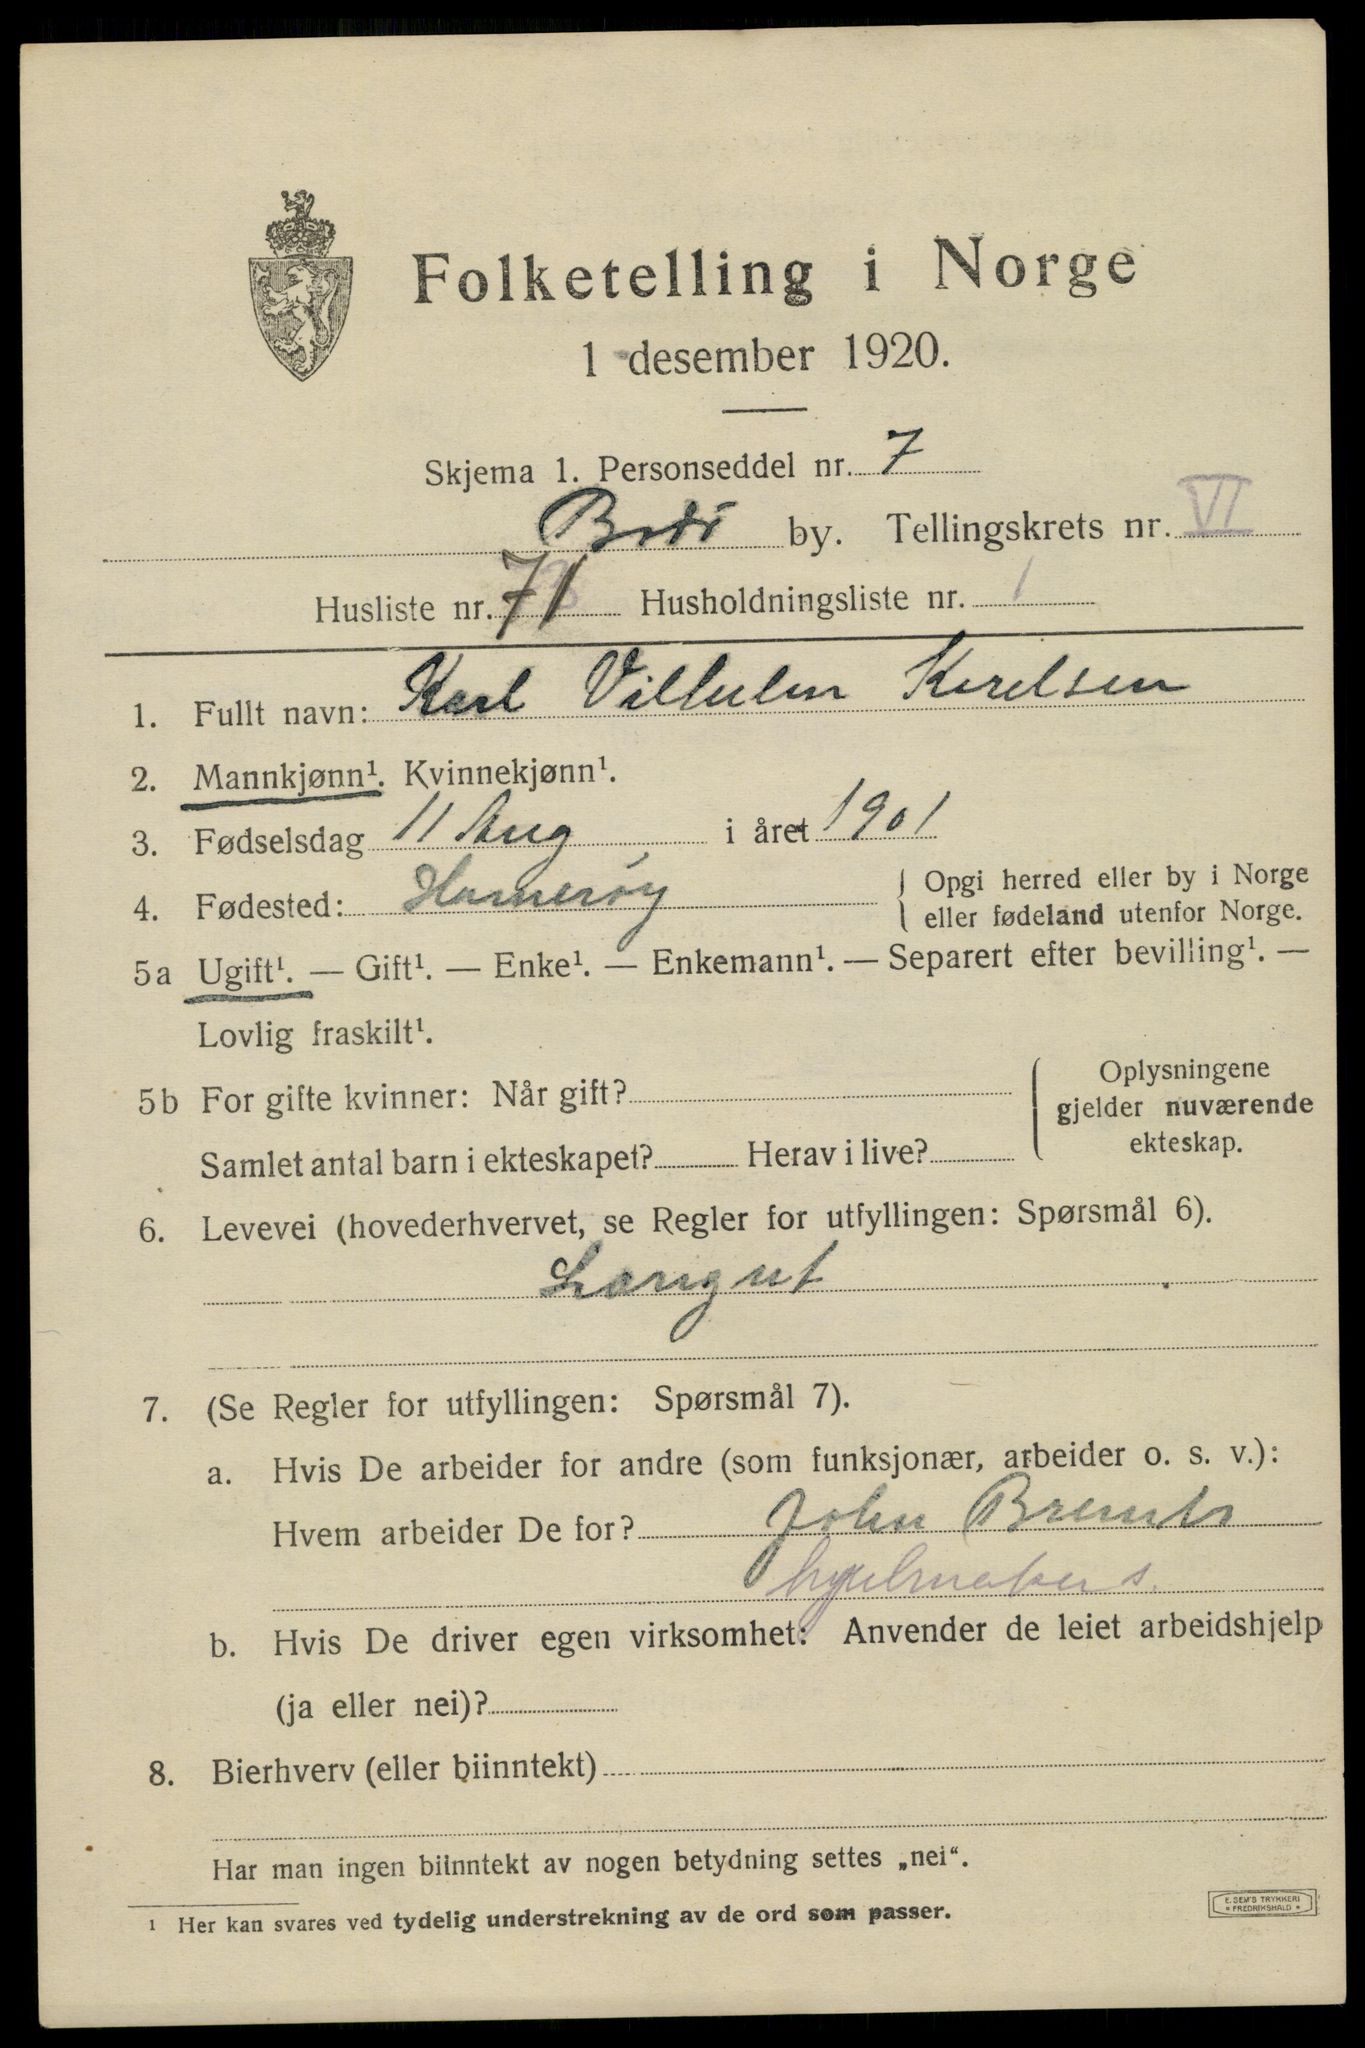 Folketelling i Norge
1 desember 1920.
Skjema 1. Personseddel nr. 7
Bodö by. Tellingskrets nr. VI
Husliste nr. 71 Husholdningsliste nr. 1
1. Fullt navn: Karl Vilhelm Karelsen
2. Mannkjønn¹. Kvinnekjønn¹.
3. Fødselsdag 11 Aug i året 1901
4. Fødested: Hamerøy { Opgi herred eller by i Norge
eller fødeland utenfor Norge.
5a Ugift¹. — Gift¹. — Enke¹. — Enkemann¹. — Separert efter bevilling¹. —
Lovlig fraskilt¹.
5b For gifte kvinner: Når gift?
Samlet antal barn i ekteskapet? Herav i live?
Oplysningene
gjelder nuværende
ekteskap.
6. Levevei (hovederhvervet, se Regler for utfyllingen: Spørsmål 6).
Lærigut
7. (Se Regler for utfyllingen: Spørsmål 7).
a. Hvis De arbeider for andre (som funksjonær, arbeider o. s. v.):
Hvem arbeider De for? John
b. Hvis De driver egen virksomhet: Anvender de leiet arbeidshjelp
(ja eller nei)?
8. Bierhverv (eller biinntekt)
Har man ingen biinntekt av nogen betydning settes „nei“.
¹ Her kan svares ved tydelig understrekning av de ord som passer.
E. SEM'S TRYKKERI
* FREDRIKSHALD *